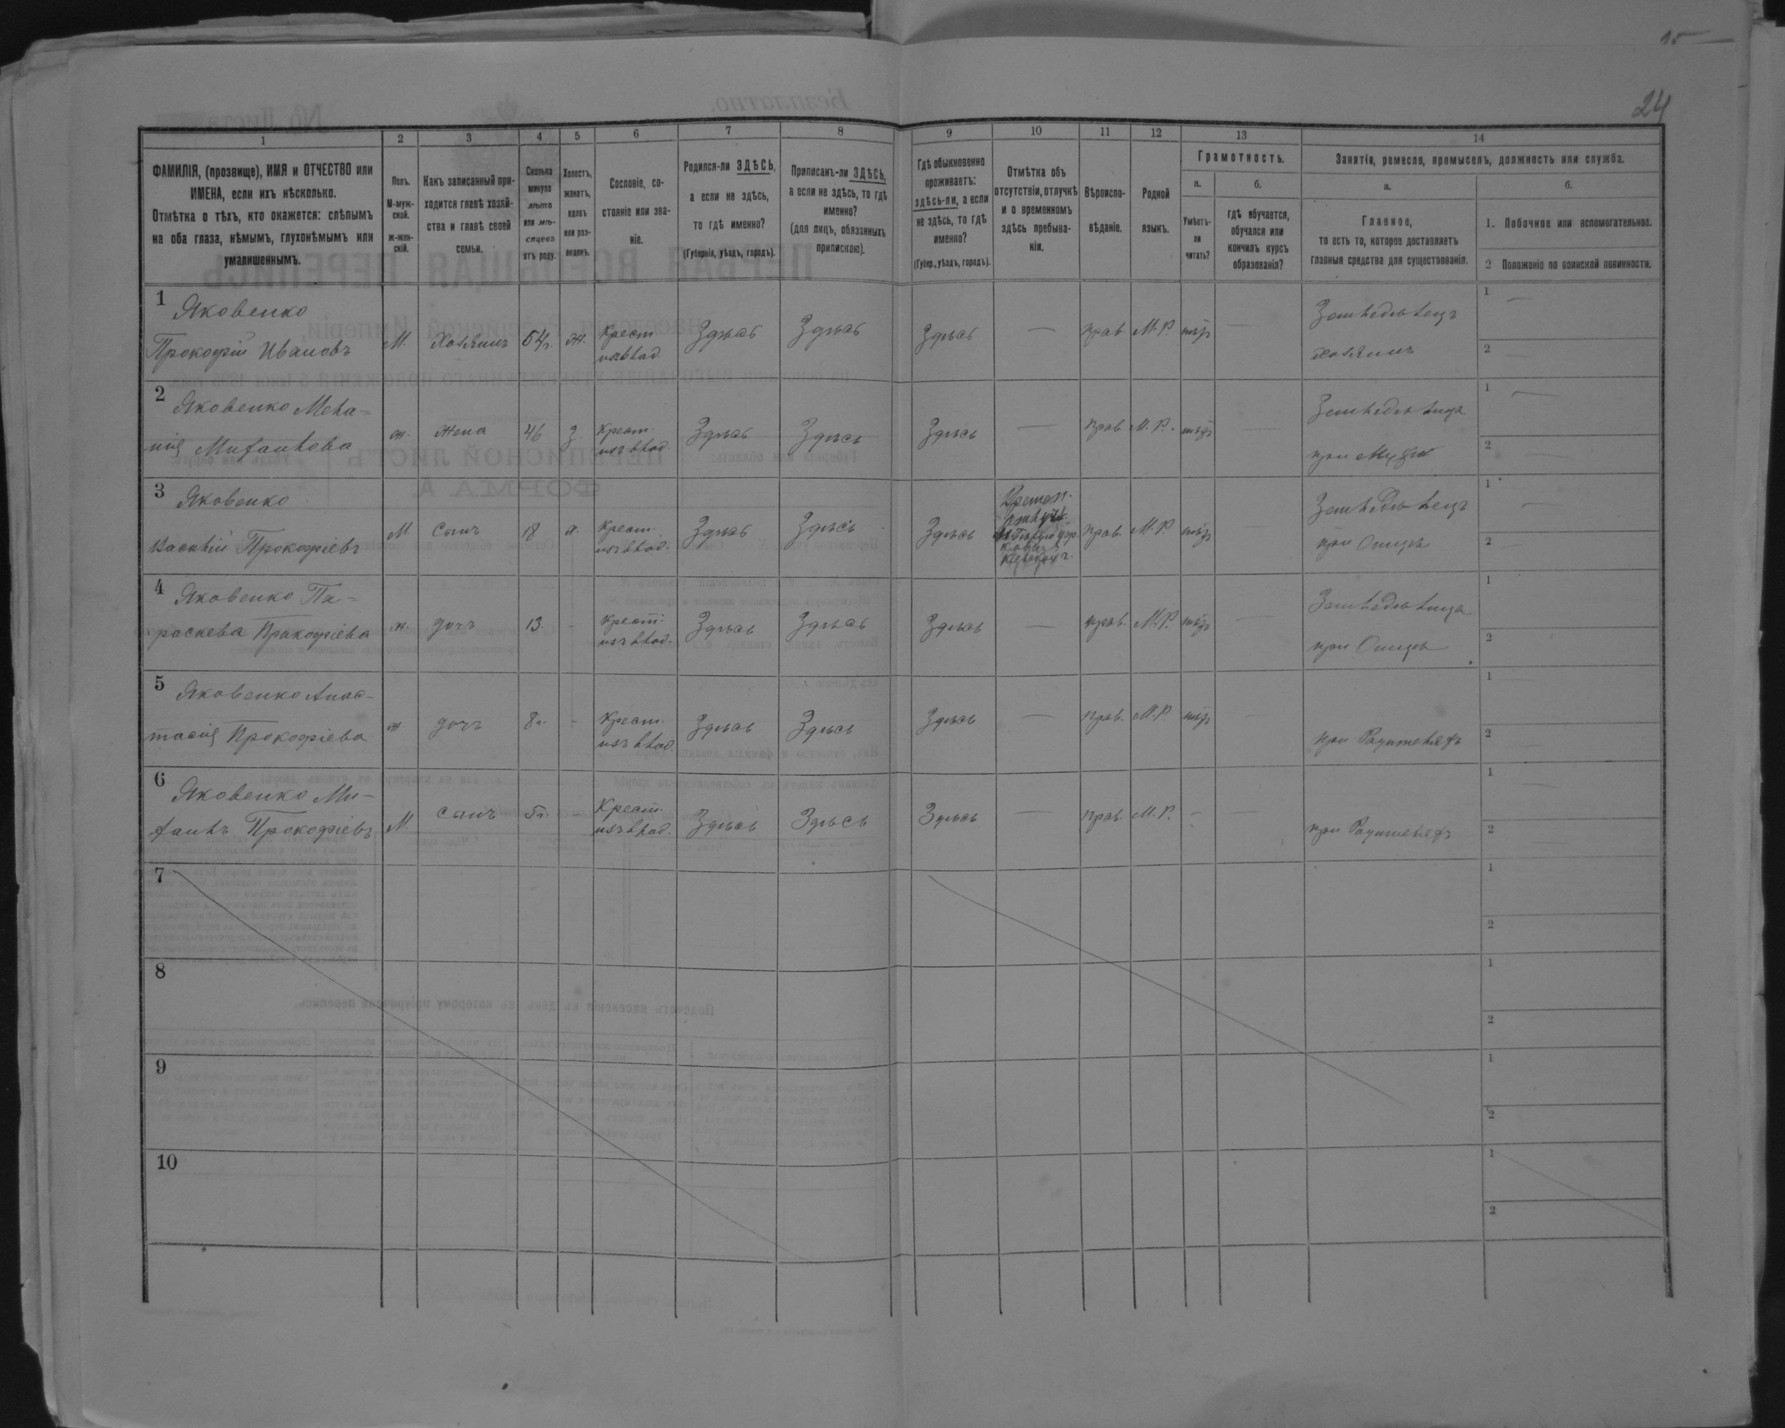 24
1 2 3 4 5 6 7 8 9 10 11 12 13 14
ФАМИЛІЯ, (прозвище), ИМЯ и ОТЧЕСТВО или
ИМЕНА, если ихъ нѣсколько.
Отмѣтка о тѣхъ, кто окажется: слѣпымъ
на оба глаза, нѣмымъ, глухонѣмымъ или
умалишеннымъ.
Полъ.
М-муж-
ской.
ж-жен-
скій.
Какъ записанный при-
ходится главѣ хозяй-
ства и главѣ своей
семьи.
Сколько
минуло
лѣтъ
или мѣ-
сяцевъ
отъ роду.
Холостъ,
женатъ,
вдовъ
или раз-
веденъ.
Сословіе, со-
стояніе или зва-
ніе.
Родился-ли ЗДѢСЬ,
а если не здѣсь,
то гдѣ именно?
(Губернія, уѣздъ, городъ).
Приписанъ-ли ЗДѢСЬ,
а если не здѣсь, то гдѣ
именно?
(для лицъ, обязанныхъ
припискою).
Гдѣ обыкновенно
проживаетъ:
здѣсь-ли, а если
не здѣсь, то гдѣ
именно?
(Губер., уѣздъ, городъ).
Отмѣтка объ
отсутствіи, отлучкѣ
и о временномъ
здѣсь пребыва-
ніи.
Вѣроиспо-
вѣданіе.
Родной
языкъ.
Грамотность.
а.
Умѣетъ-
ли
читать?
б.
Гдѣ обучается,
обучался или
кончилъ курсъ
образованія?
Занятіе, ремесло, промыселъ, должность или служба.
а.
Главное,
то есть то, которое доставляетъ
главныя средства для существованія.
б.
1. Побочное или вспомогательное.
2 Положеніе по воинской повинности.
1 Яковенко
Прокофій Ивановъ М Хозяинъ 54г. ж. Крест. Здѣсь Здѣсь Здѣсь — прав М.Р. — Земледѣлецъ 1 —
хозяинъ 2 —
2 Яковенко Мела-
нія ж. жена 46 з. Крест. Здѣсь Здѣсь Здѣсь — прав М.Р. — Земледѣлица 1 —
при Мужѣ 2 —
3 Яковенко
Василій Прокофіевъ М сынъ 18 Крест. Здѣсь Здѣсь Здѣсь прав. М.Р. — Земледѣлецъ 1 —
при Отцѣ 2 —
4 Яковенко Па-
раскева Прокофіева ж. дочь 13. - Крест. Здѣсь Здѣсь Здѣсь — прав. М.Р. — Земледѣлица 1 —
при Отцѣ 2 —
5 Яковенко Анас-
тасія Прокофіева ж дочь 8г. - Крест. Здѣсь Здѣсь Здѣсь — прав. М.Р. — 1 —
при Родителяхъ 2 —
6 Яковенко Ми-
Прокофіевъ М сынъ 5г. - Крест. Здѣсь Здѣсь Здѣсь — прав. М.Р. - — 1 —
при Родителяхъ 2 —
7 1
2
8 1
2
9 1
2
10 1
2